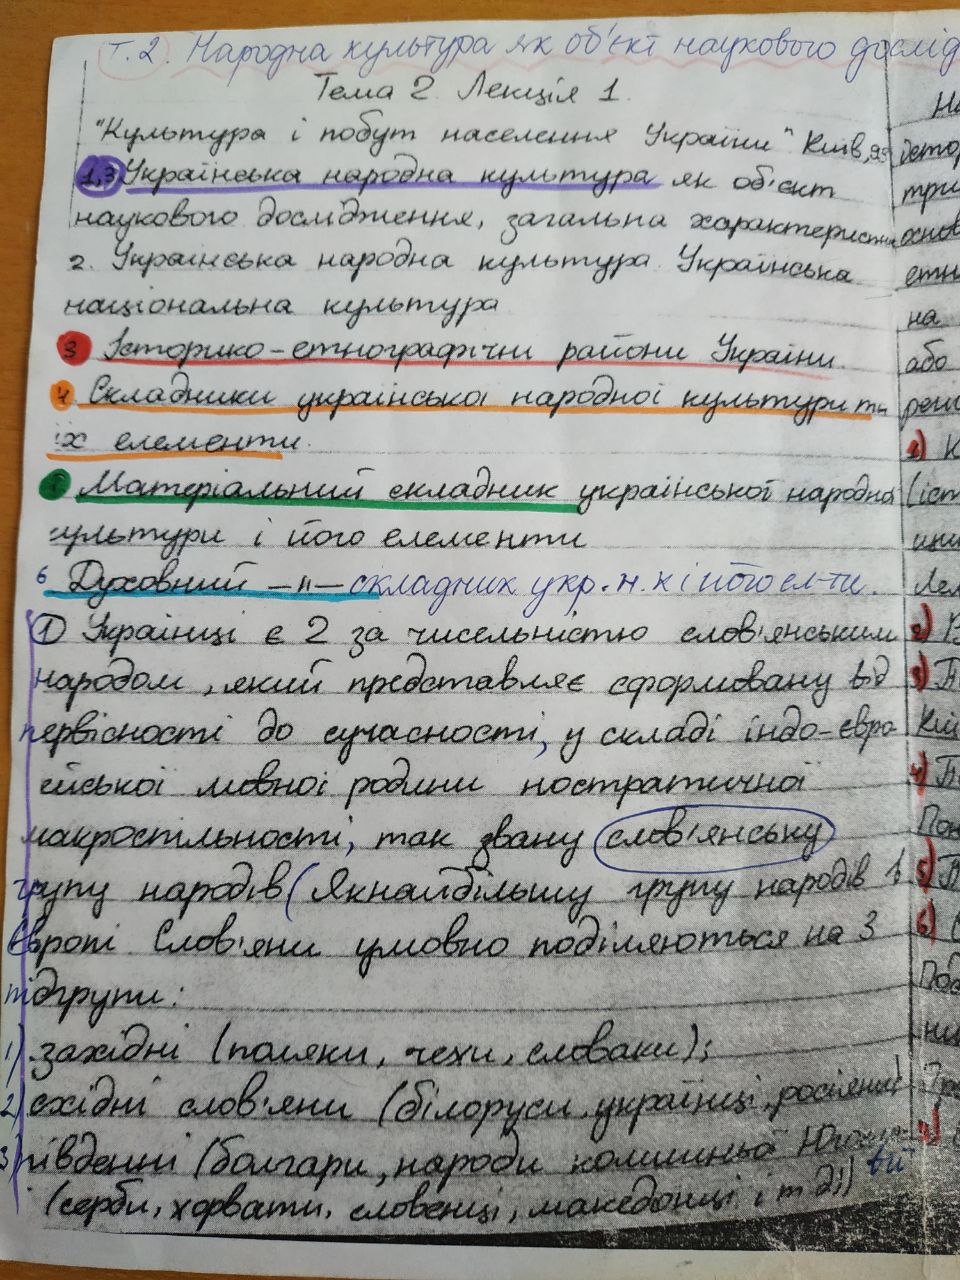 Т. 2. Народна культура як об'єкт наукового дослід
Тема 2. Лекція 1.
"Культура і побут населення України" Київ, 93
1,3 Українська народна культура як об'єкт
наукового дослідження, загальна характеристика
2. Українська народна культура. Українська
національна культура
3 Історико-етнографічні райони України.
4 Складники української народної культури та
їх елементи.
Матеріальний складник української народної
культури і його елементи
6 Духовний —"— складник укр. н. к і його ел-ти.
1) Українці є 2 за чисельністю слов'янським
народом, який представляє сформовану від
первісності до сучасності, у складі індо-євро
ейської мовної родини ностратичної
макроспільності, так звану слов'янську
групу народів (Якнайбільшу групу народів в
Європі Слов'яни умовно поділяються на 3
підгрупи:
1) західні (поляки, чехи, словаки);
2) східні слов'яни (білоруси, українці, росіяни)
3) південні (болгари, народи колишньої
(серби, хорвати, словенці, македонці і т д))
на
або
1) К
2) В
3)
4)
5)
6)